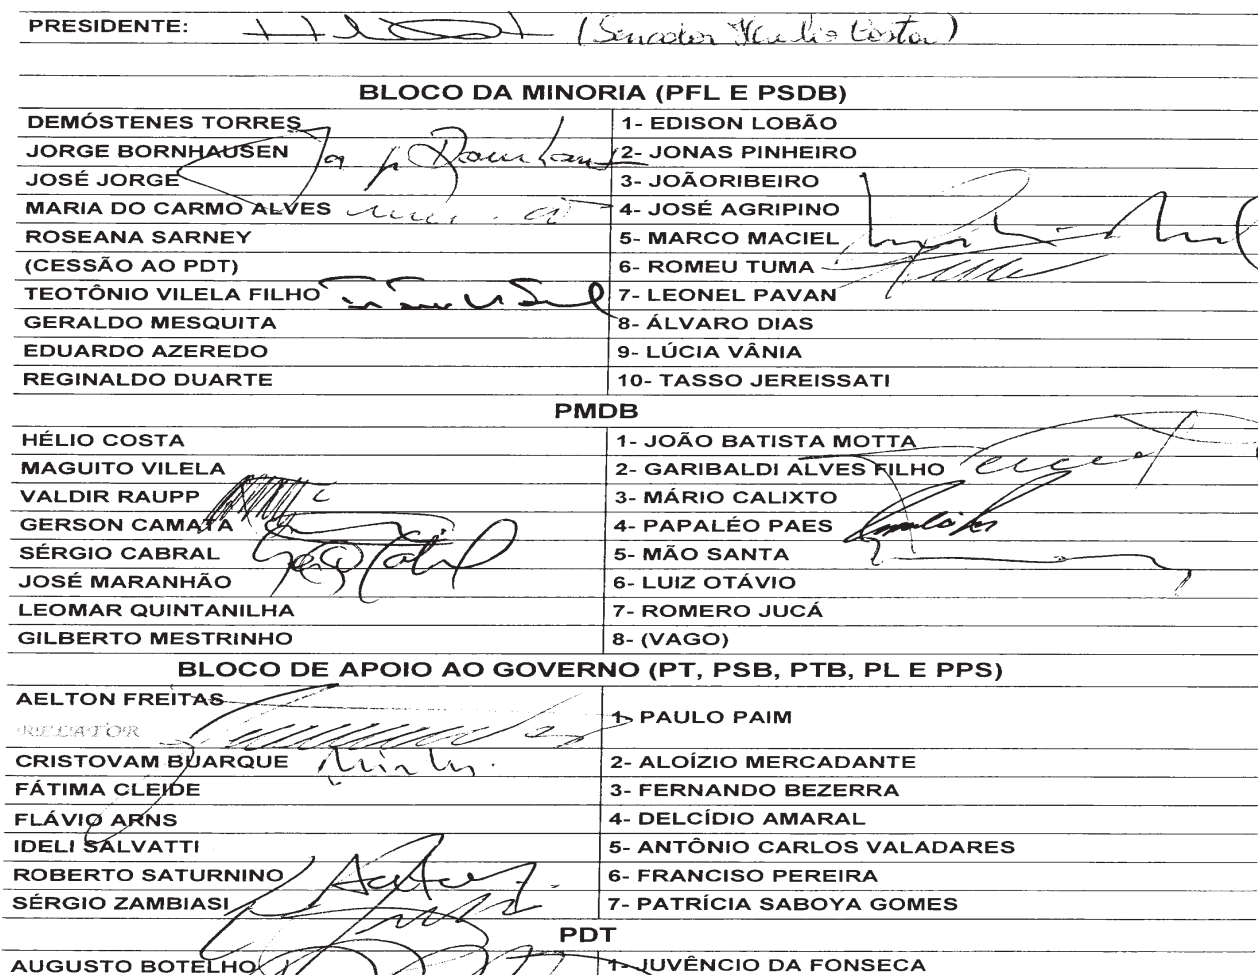 PRESIDENTE: (Senador Hélio Costa)
BLOCO DA MINORIA (PFL E PSDB)
DEMÓSTENES TORRES 1- EDISON LOBÃO
JORGE BORNHAUSEN 2- JONAS PINHEIRO
JOSÉ JORGE 3- JOÃORIBEIRO
MARIA DO CARMO ALVES 4- JOSÉ AGRIPINO
ROSEANA SARNEY 5- MARCO MACIEL
(CESSÃO AO PDT) 6- ROMEU TUMA
TEOTÔNIO VILELA FILHO 7- LEONEL PAVAN
GERALDO MESQUITA 8- ÁLVARO DIAS
EDUARDO AZEREDO 9- LÚCIA VÂNIA
REGINALDO DUARTE 10- TASSO JEREISSATI
PMDB
HÉLIO COSTA 1- JOÃO BATISTA MOTTA
MAGUITO VILELA 2- GARIBALDI ALVES FILHO
VALDIR RAUPP 3- MÁRIO CALIXTO
GERSON CAMATA 4- PAPALÉO PAES
SÉRGIO CABRAL 5- MÃO SANTA
JOSÉ MARANHÃO 6- LUIZ OTÁVIO
LEOMAR QUINTANILHA 7- ROMERO JUCÁ
GILBERTO MESTRINHO 8- (VAGO)
BLOCO DE APOIO AO GOVERNO (PT, PSB, PTB, PL E PPS)
AELTON FREITAS
RELATOR 1- PAULO PAIM
CRISTOVAM BUARQUE 2- ALOÍZIO MERCADANTE
FÁTIMA CLEIDE 3- FERNANDO BEZERRA
FLÁVIO ARNS 4- DELCÍDIO AMARAL
IDELI SALVATTI 5- ANTÔNIO CARLOS VALADARES
ROBERTO SATURNINO 6- FRANCISO PEREIRA
SÉRGIO ZAMBIASI 7- PATRÍCIA SABOYA GOMES
PDT
AUGUSTO BOTELHO 1- JUVÊNCIO DA FONSECA